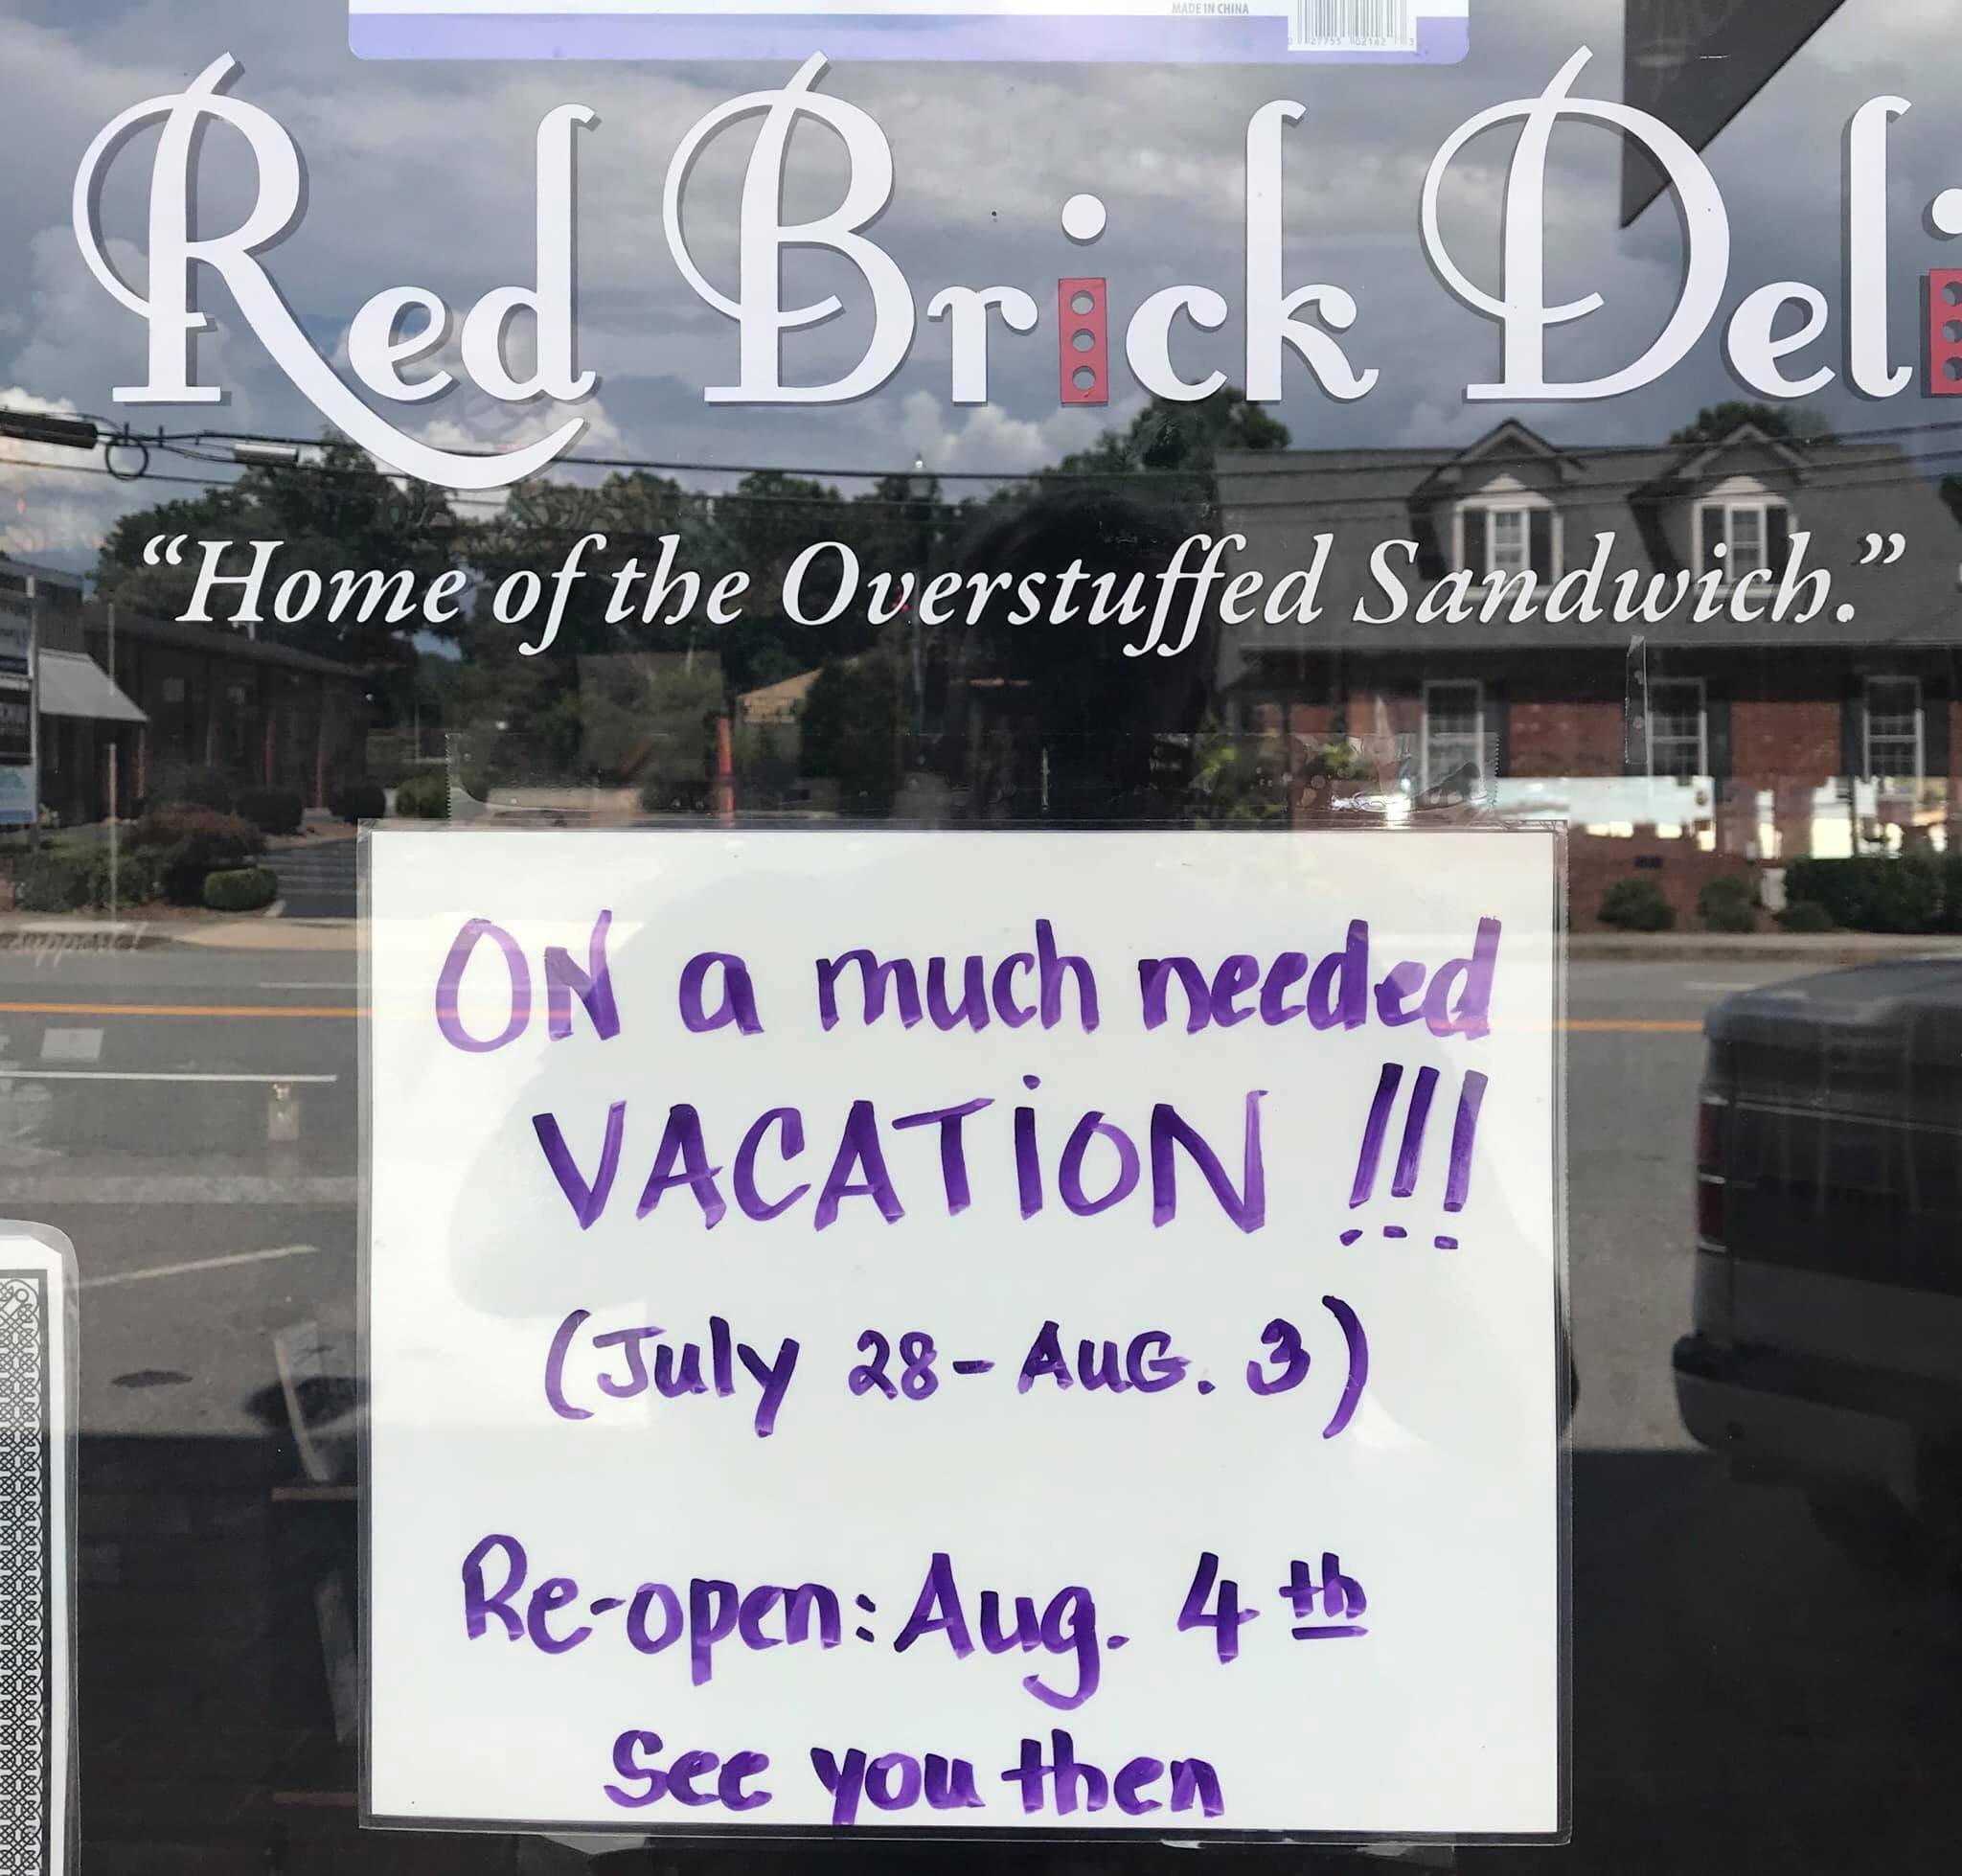 MADE IN CHINA
Red Brick Deli
“Home of the Overstuffed Sandwich.”
ON a much needed
VACATiON !!!
(July 28 - AUG. 3)
Re-open: Aug. 4th
See you then